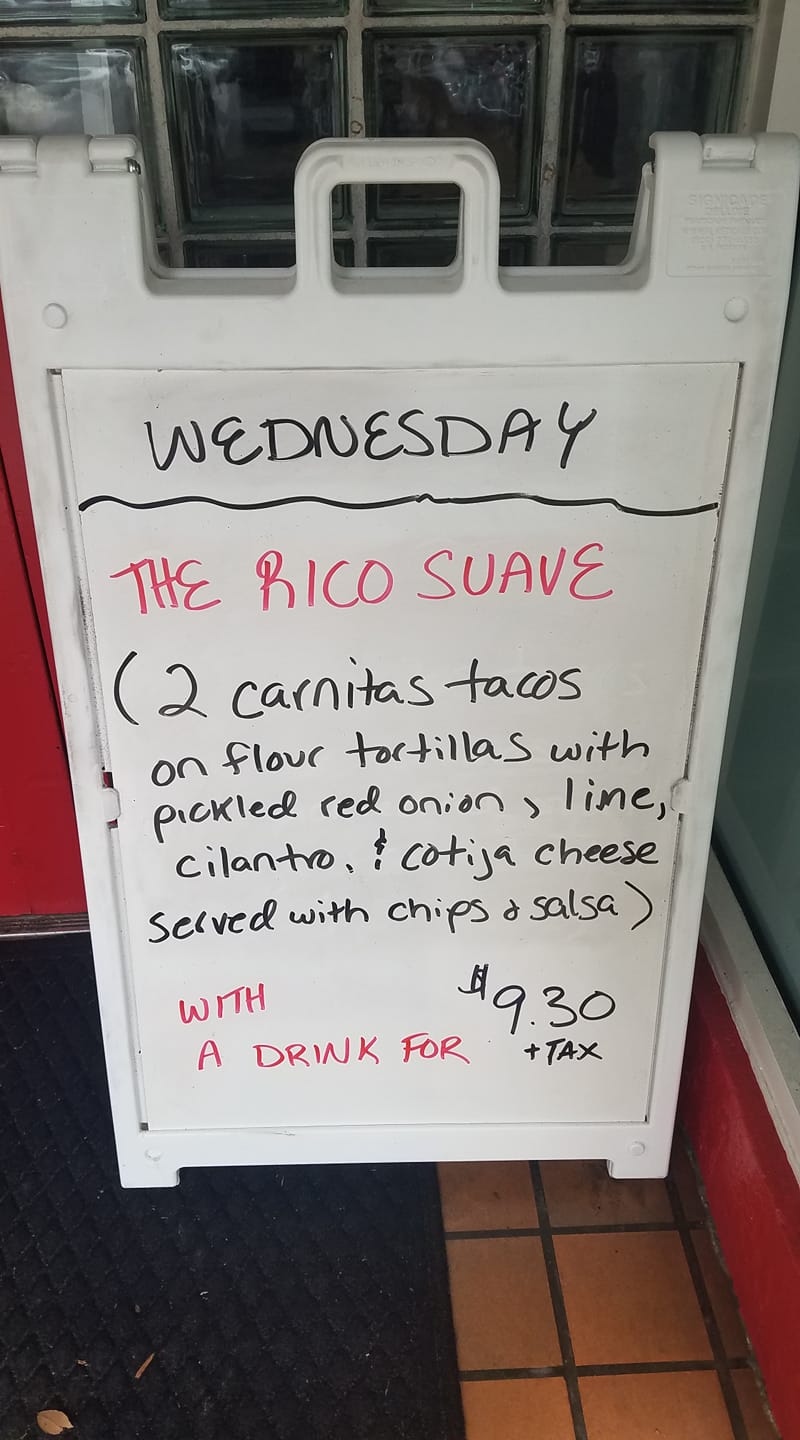 WEDNESDAY
THE RICO SUAVE
(2 carnitas tacos
on flour tortillas with
pickled red onion, lime,
cilantro, & cotija cheese
served with chips & salsa)
WITH
A DRINK FOR
$9.30
+ TAX
SIGNICADE
DELUXE